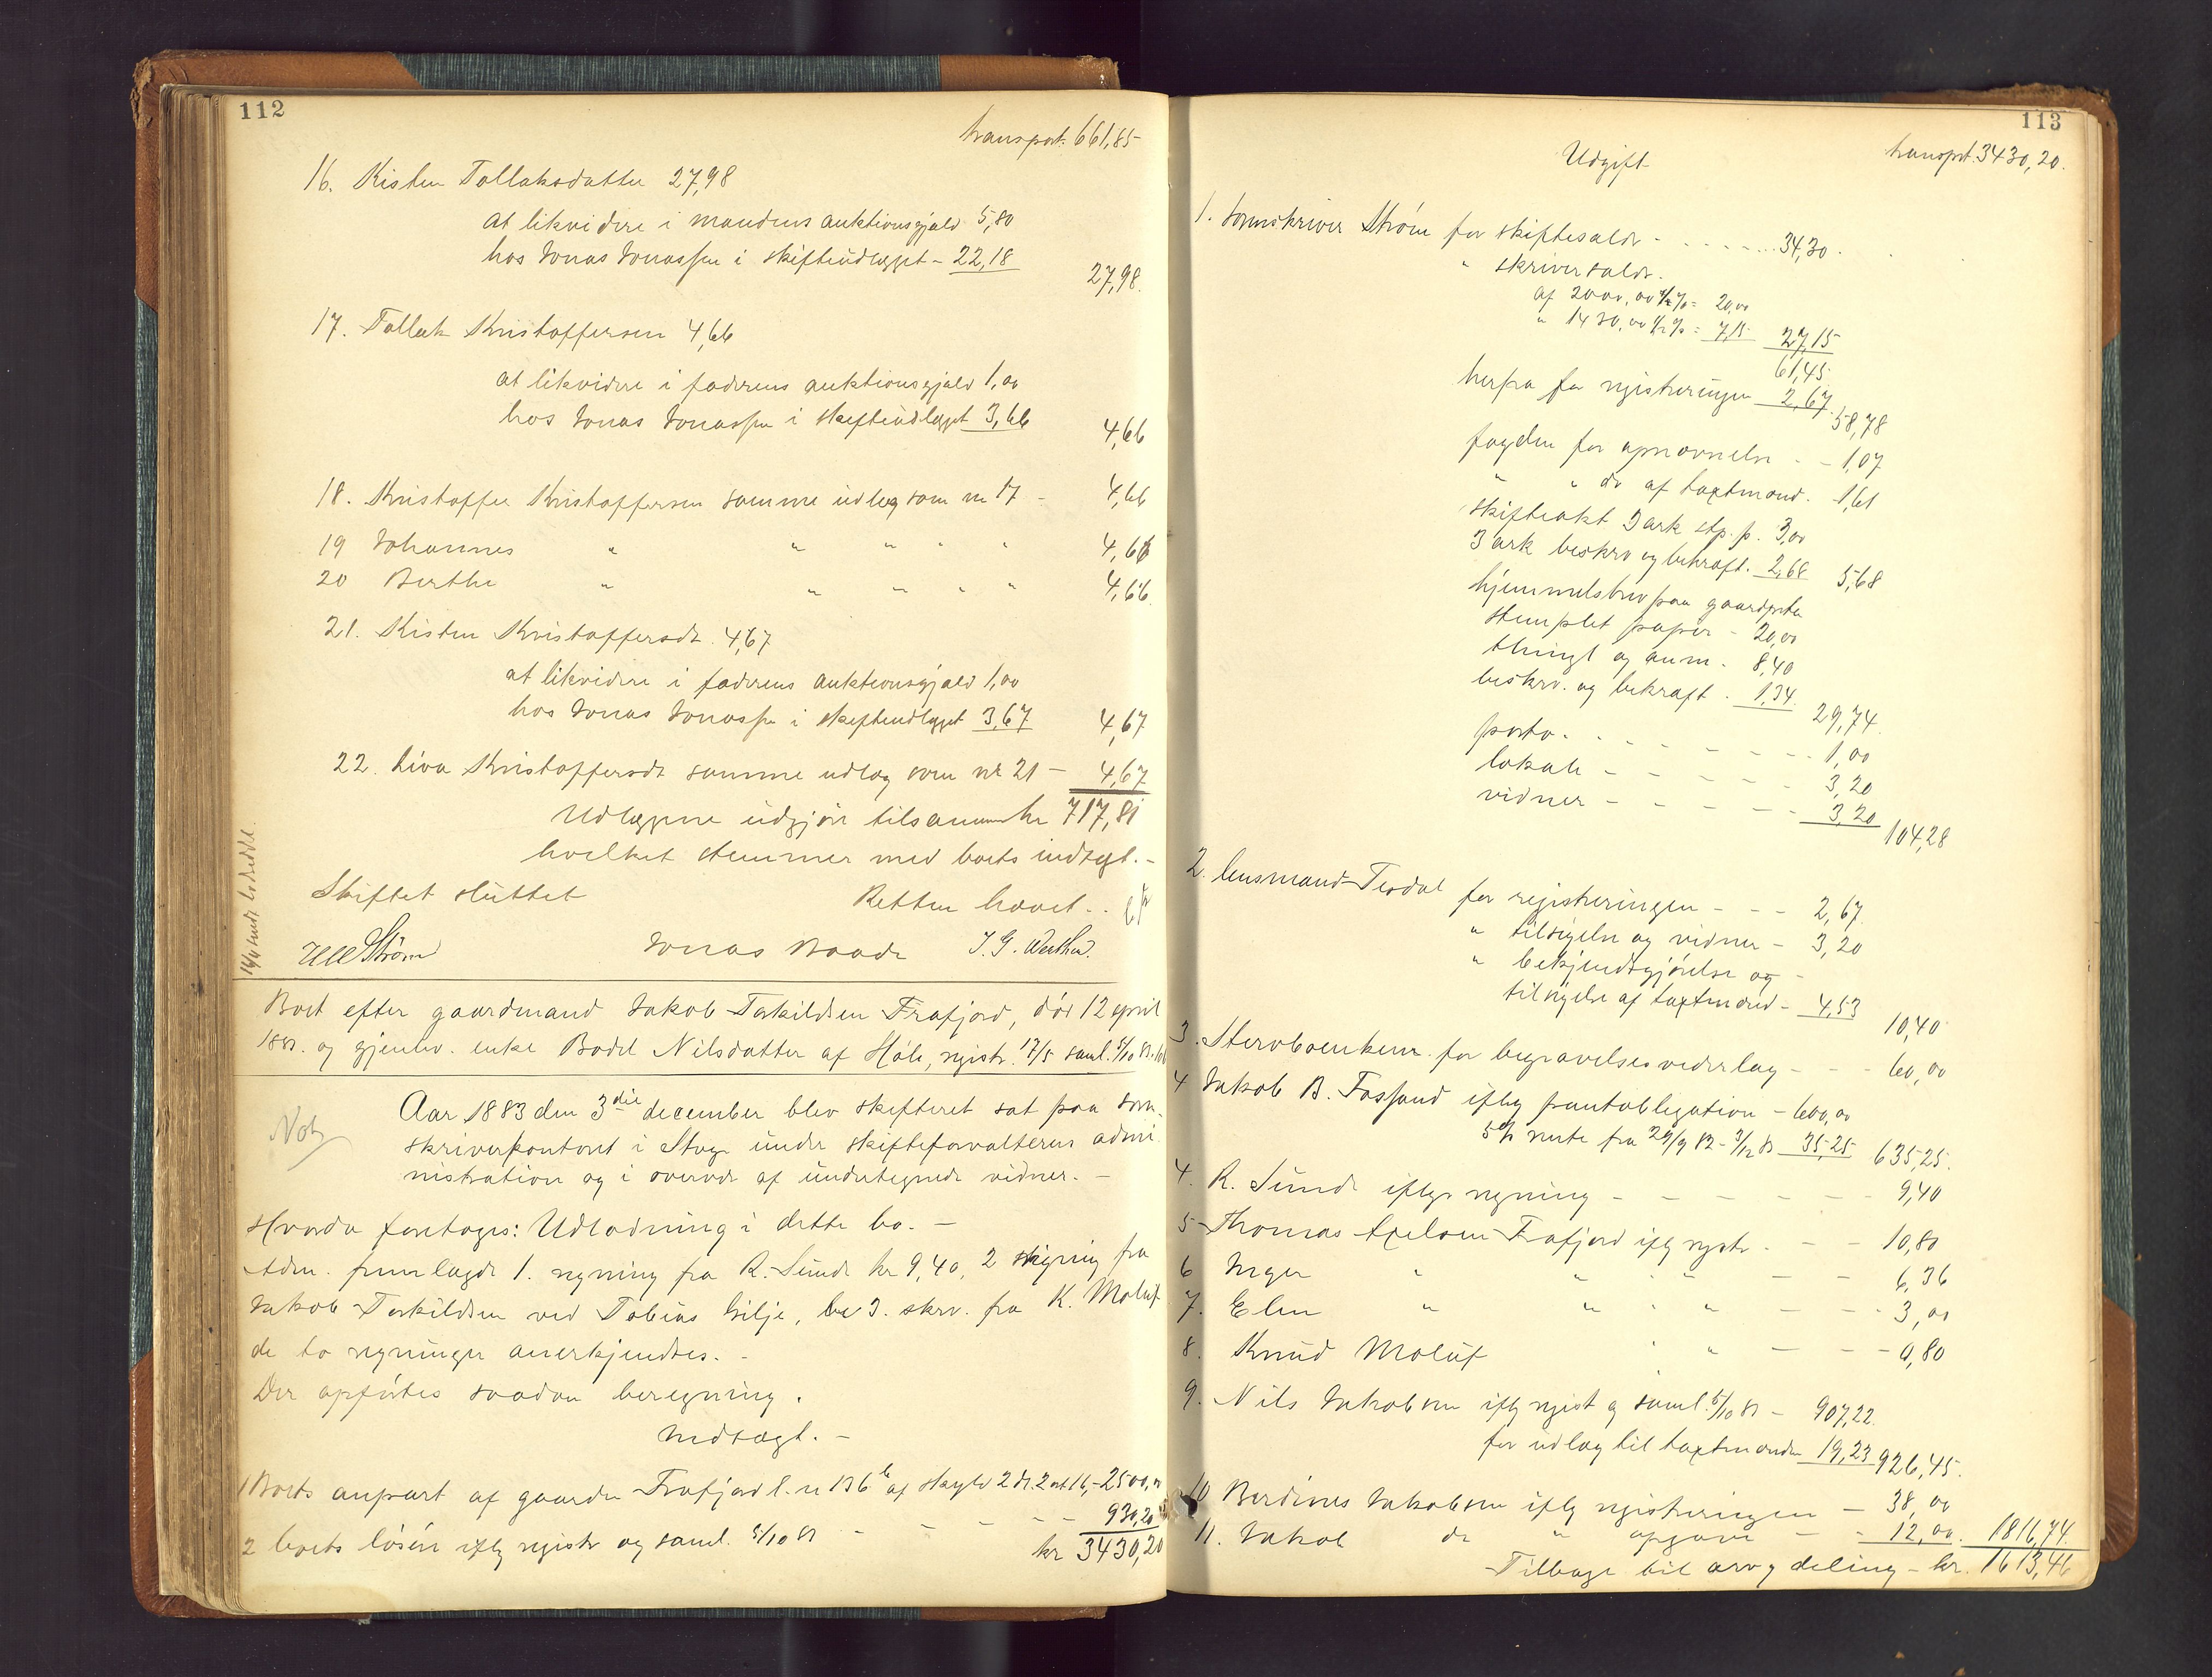 112
transport. 661,85
16. Kisten Tollaksdatter 27,98
at likvidere i mandens auktionsgjæld 5,80
hos Jonas Jonassen i skifteudlægget - 22,18
27,98.
17. Tollak Kristoffersen 4,66
at likvidere i faderens auktionsgjæld 1,00
hos Jonas Jonassen i skifteudlægget 3,66
4,66
18. Kristoffer Kristoffersen samme udlæg som nr 17 - 4,66
19 Johannes " " " " " 4,66
20 Berthe " " " " " 4,66
21. Kisten Kristoffersdt. 4,67
at likvidere i faderens auktionsgjæld 1,00
hos Jonas Jonassen i skifteudlægget 3,67
4,67
22. Liva Kristoffersdt samme udlæg som nr 21 - 4,67
Udlæggene udgjør tilsammen kr 717,81
hvilket stemmer med boets indtægt. -
Skiftet sluttet
Retten hævet. .
Strøm Jonas Braade J. G. Werthu.
Boet efter gaardmand Jakob Taskildsen Frafjord, død 12 april
1883. og gjenlev. enke Bodil Nilsdatter af Høle, registr. 17/5 saml. 5/10 83.
Not
Aar 1883 den 3die december blev skifteret sat paa sorn-
skriverkontoret i Stvgr under skifteforvalterens admi
nistration og i overvær af undertegnede vidner. -
Hvorda foretoges: Udlodning i dette bo. -
Adm. fremlagde 1. regning fra R. Sunde kr 9,40, 2 skrivning fra
Jakob Taskildsen ved Tobias Gilje, 3. skrv. fra K. Moluf
de to regninger anerkjendtes. -
Der opførtes saadan beregning.
Indtægt. -
1 Boets anpart af gaarden Frafjord l. n 136b af skyld 2 dl. 2 ort 16,- 2500,00
2 boets løsøre iflg registr og saml. 5/10 83 - - - - - 930,20
kr 3430,20
113
Udgift
transpt. 3430,20.
1. Sorenskriver Strøm for skiftesalær - . . . . . 34,30.
" skriversalær.
af 2000,00 1/1 % = 20,00
" 1430,00 1/2 % = 7,15 27,15
61,45
herfra for registreringen 2,67. 58,78
fogden for opnævnelse - - 1,07
" " do af taxtmænd. 1,61
skifteakt 3 ark stp. p. 3,00
3 ark beskrv og bekræft. 2,68 5,68
hjemmelsbrev paa gaardparten
stemplet papir - 20,00
thingl og anm. 8,40
beskrv. og bekræft. 1,34.
29,74
porto. . - - - - - - 1,00
lokale - - - - - - 3,20
vidner - - - - - 3,20
104,28
2. lensmand Tesdal for registreringen - - - 2,67.
" tilsigelse og vidner - 3,20
" bekjendtgjørelse og -
tilsigelse af taxtmænd - 4,53
10,40
3. Stervboenken for begravelsesvederlag - - - 60,00
4 Jakob B. Fossand iflg pantobligation - 600,00
5 % rente fra 29/9 82 - 3/12 83 35,25 635,25.
4. R. Sunde iflge regning - - - - - - 9,40
5 Thomas Axelsen Frafjord iflg registr. - - - 10,80
6 Inger " " " - - 6,36
7. Elen " " " " - - 3,00
8. Knud Moluf " " - - - 0,80
9. Nils Jakobsen iflg regist og saml. 5/10 83 - 907,22.
for udlæg til taxtmænden 19,23 926,45.
10 Berdines Jakobsen iflg registreringen - 38,00
11. Jakob do " opgave - - 12,00. 1816,74.
Tilbage til arv og deling - kr. 1613,46